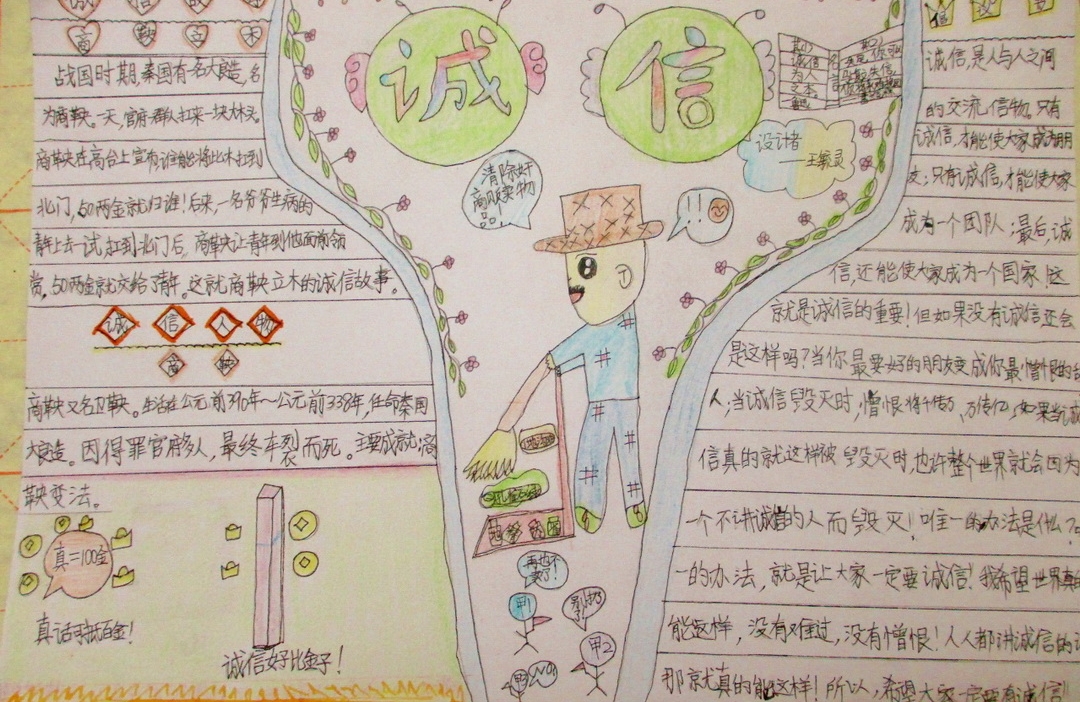 商鞅立木
战国时期,秦国有名大良造,名
为商鞅。一天,官府群人扛来一块木头。
商鞅在高台上宣布谁能将此木扛到
北门,50两金就归谁!后来,一名爷爷生病的
青年上去一试,扛到北门后,商鞅让青年到他面前领
赏。50两金就交给了青年。这就商鞅立木的诚信故事。
诚信人物
商鞅
商鞅又名卫鞅。生活在公元前390年~公元前338年,任命秦国
大良造。因得罪官府多人,最终车裂而死。主要成就:商
鞅变法。
真=100金
真话可抵百金!
诚信好比金子!
诚信
我们
诚信
为人
之本
设计者
——王毓灵
清除奸
商贩卖物
品!
!!
再也不
敢了!
甲1
甲2
NO!
诚信,是人与人之间
的交流信物。只有
诚信,才能使大家成为朋
友;只有诚信,才能使大家
成为一个团队;最后,诚
信,还能使大家成为一个国家!这
就是诚信的重要!但如果没有诚信还会
是这样吗?当你最要好的朋友变成你最憎恨的
人;当诚信毁灭时,憎恨将千传万,万传亿,如果当诚
信真的就这样被毁灭时,也许整个世界就会因为
一个不讲诚信的人而毁灭!唯一的办法是什么?
一的办法,就是让大家一定要诚信!我希望世界真的
能这样,没有难过,没有憎恨!人人都讲诚信的话
那就真的能这样!所以,希望大家一定要有诚信!